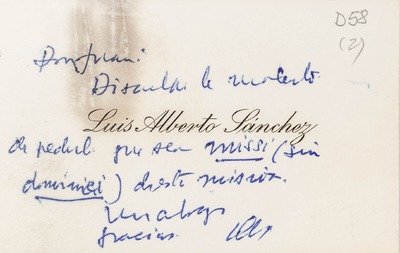 D58
(2)
Don Juan:
Disculpe le moleste
Luis Alberto Sánchez
de pedirle que sea missi (sin
dominici) de esta misiva.
Un abrazo
gracias